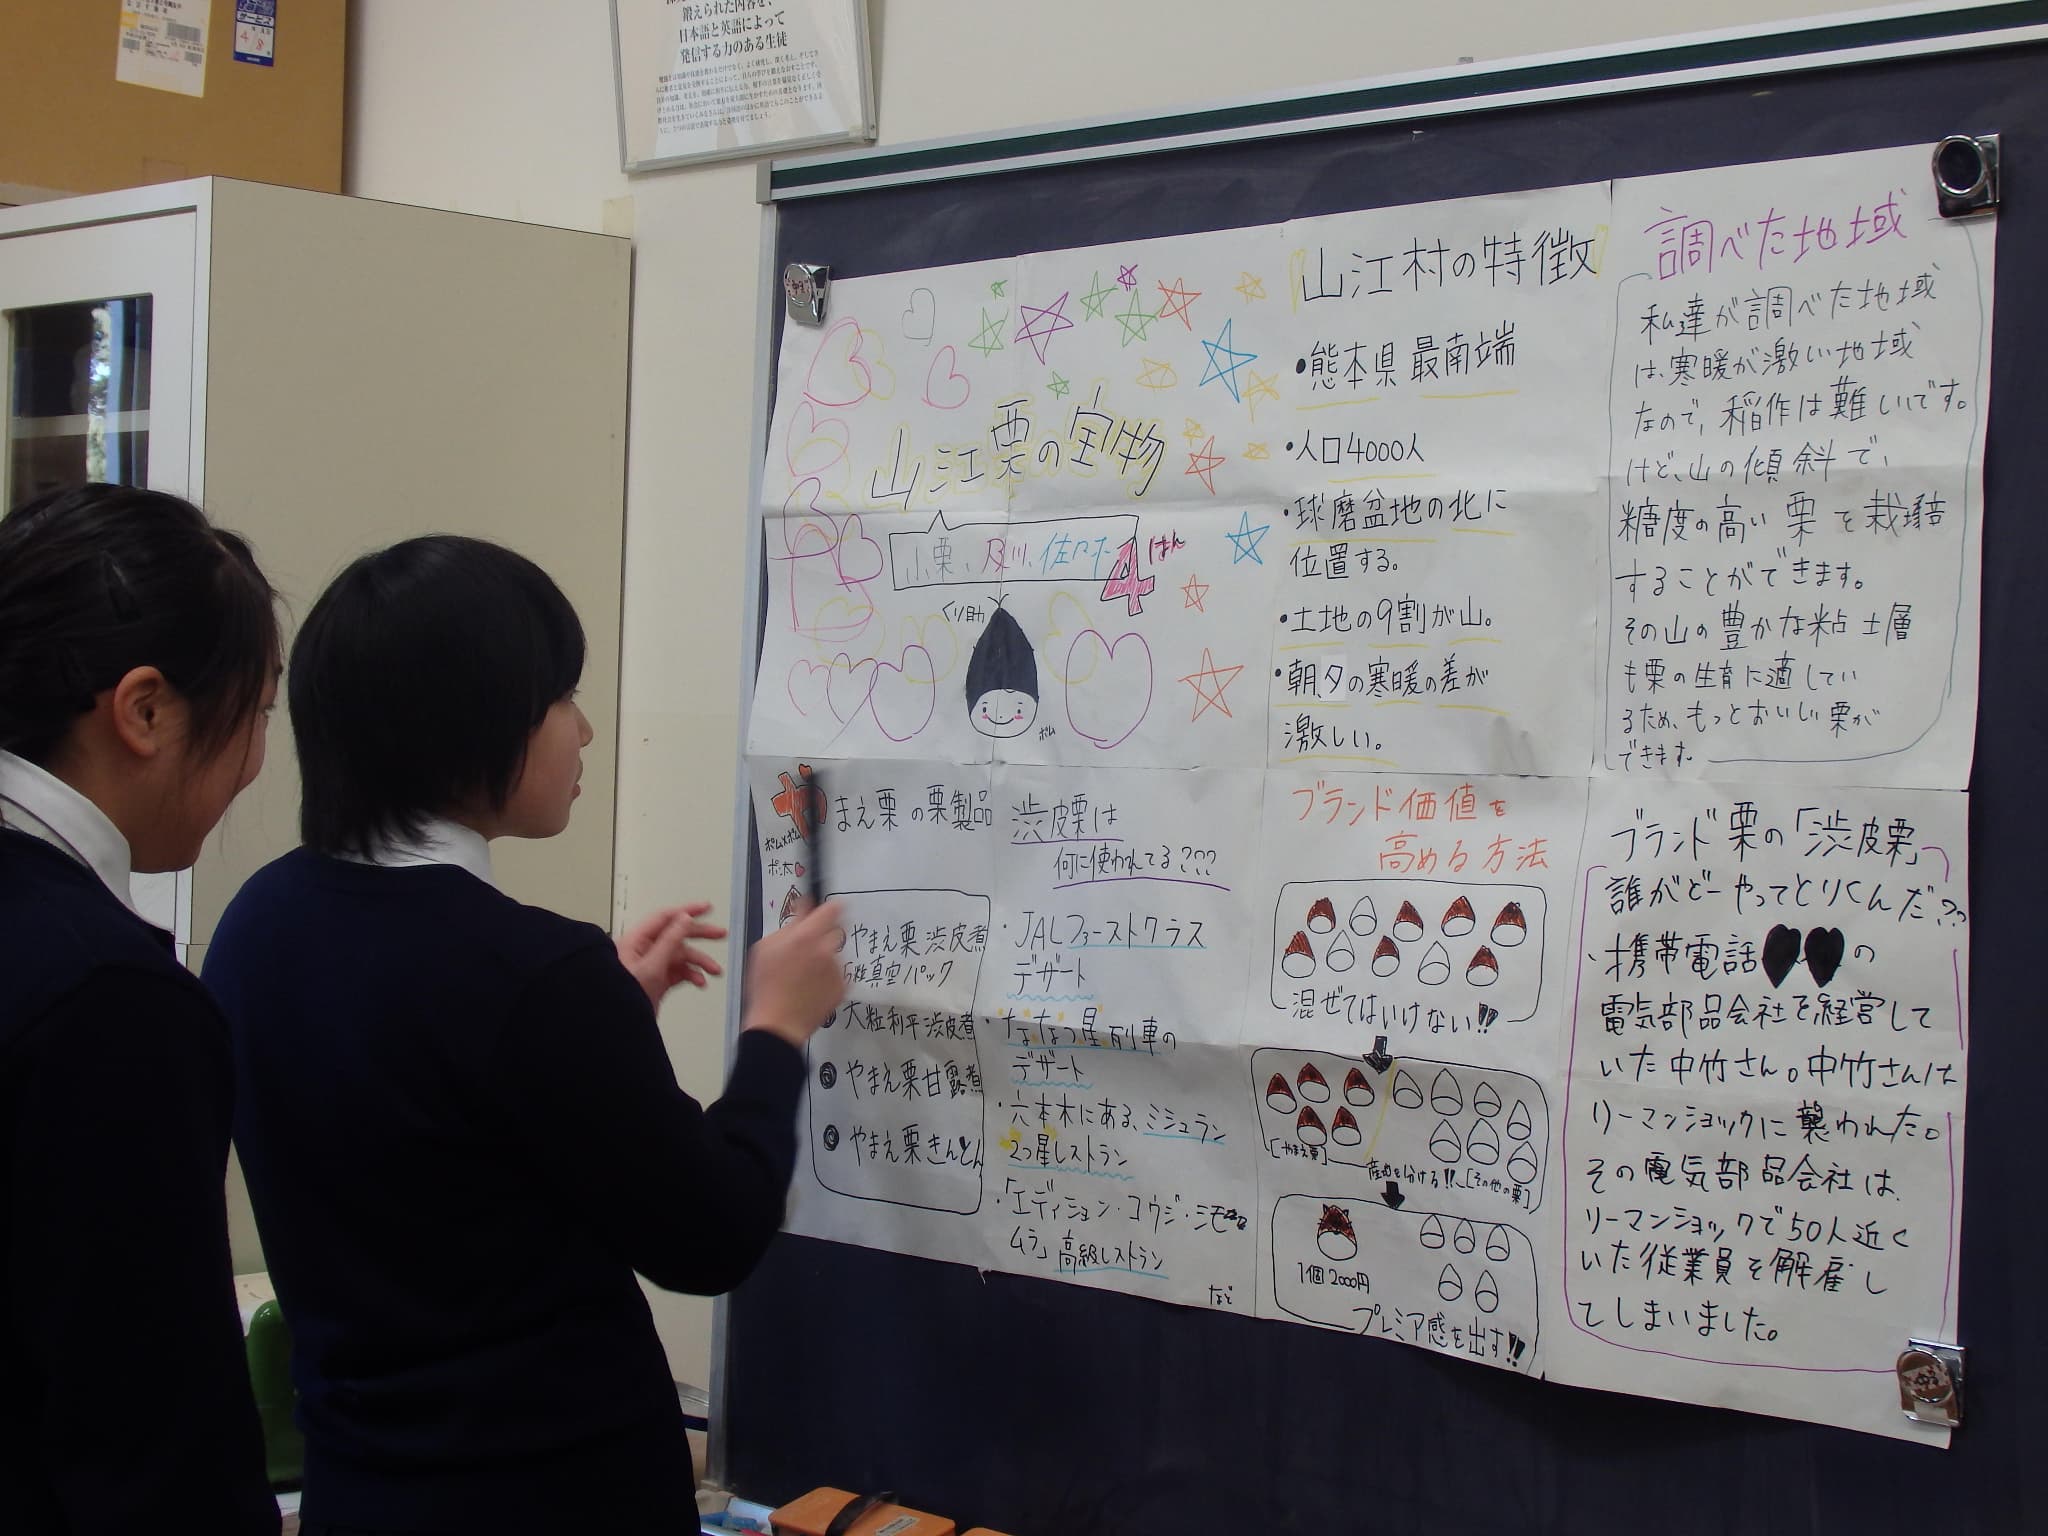 鍛えられた内容を、
日本語と英語によって
発信する力のある生徒
サービス
山江栗の宝物
小栗、及川、佐々木
4はん
くり助
ポム
山江村の特徴
・熊本県最南端
・人口4000人
・球磨盆地の北に
位置する。
・土地の9割が山。
・朝、夕の寒暖の差が
激しい。
調べた地域
私達が調べた地域
は、寒暖が激しい地域
なので、稲作は難しいです。
けど、山の傾斜で、
糖度の高い栗を栽培
することができます。
その山の豊かな粘土層
も栗の生育に適してい
るため、もっとおいしい栗が
できます。
やまえ栗の栗製品
ポム×ポム
ポン太
やまえ栗渋皮煮
5粒真空パック
大粒利平渋皮煮
やまえ栗甘露煮
やまえ栗きんとん
渋皮栗は
何に使われてる???
・JALファーストクラス
デザート
・ななつ星列車の
デザート
・六本木にある、ミシュラン
2つ星レストラン
・「エディション・コウジ・シモ
ムラ」高級レストラン
など
ブランド価値を
高める方法
混ぜてはいけない!!
[やまえ栗]
産地を分ける!!
[その他の栗]
1個2000円
プレミア感を出す!!
ブランド栗の「渋皮栗」
誰がどーやってとりくんだ??
・携帯電話の
電気部品会社を経営して
いた中竹さん。中竹さんは
リーマンショックに襲われた。
その電気部品会社は、
リーマンショックで50人近く
いた従業員を解雇し
てしまいました。